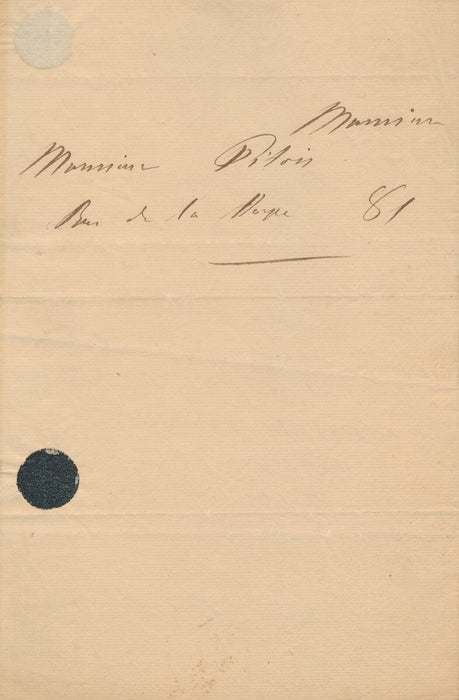 Monsieur
Monsieur Pitois
Rue de la Harpe 81